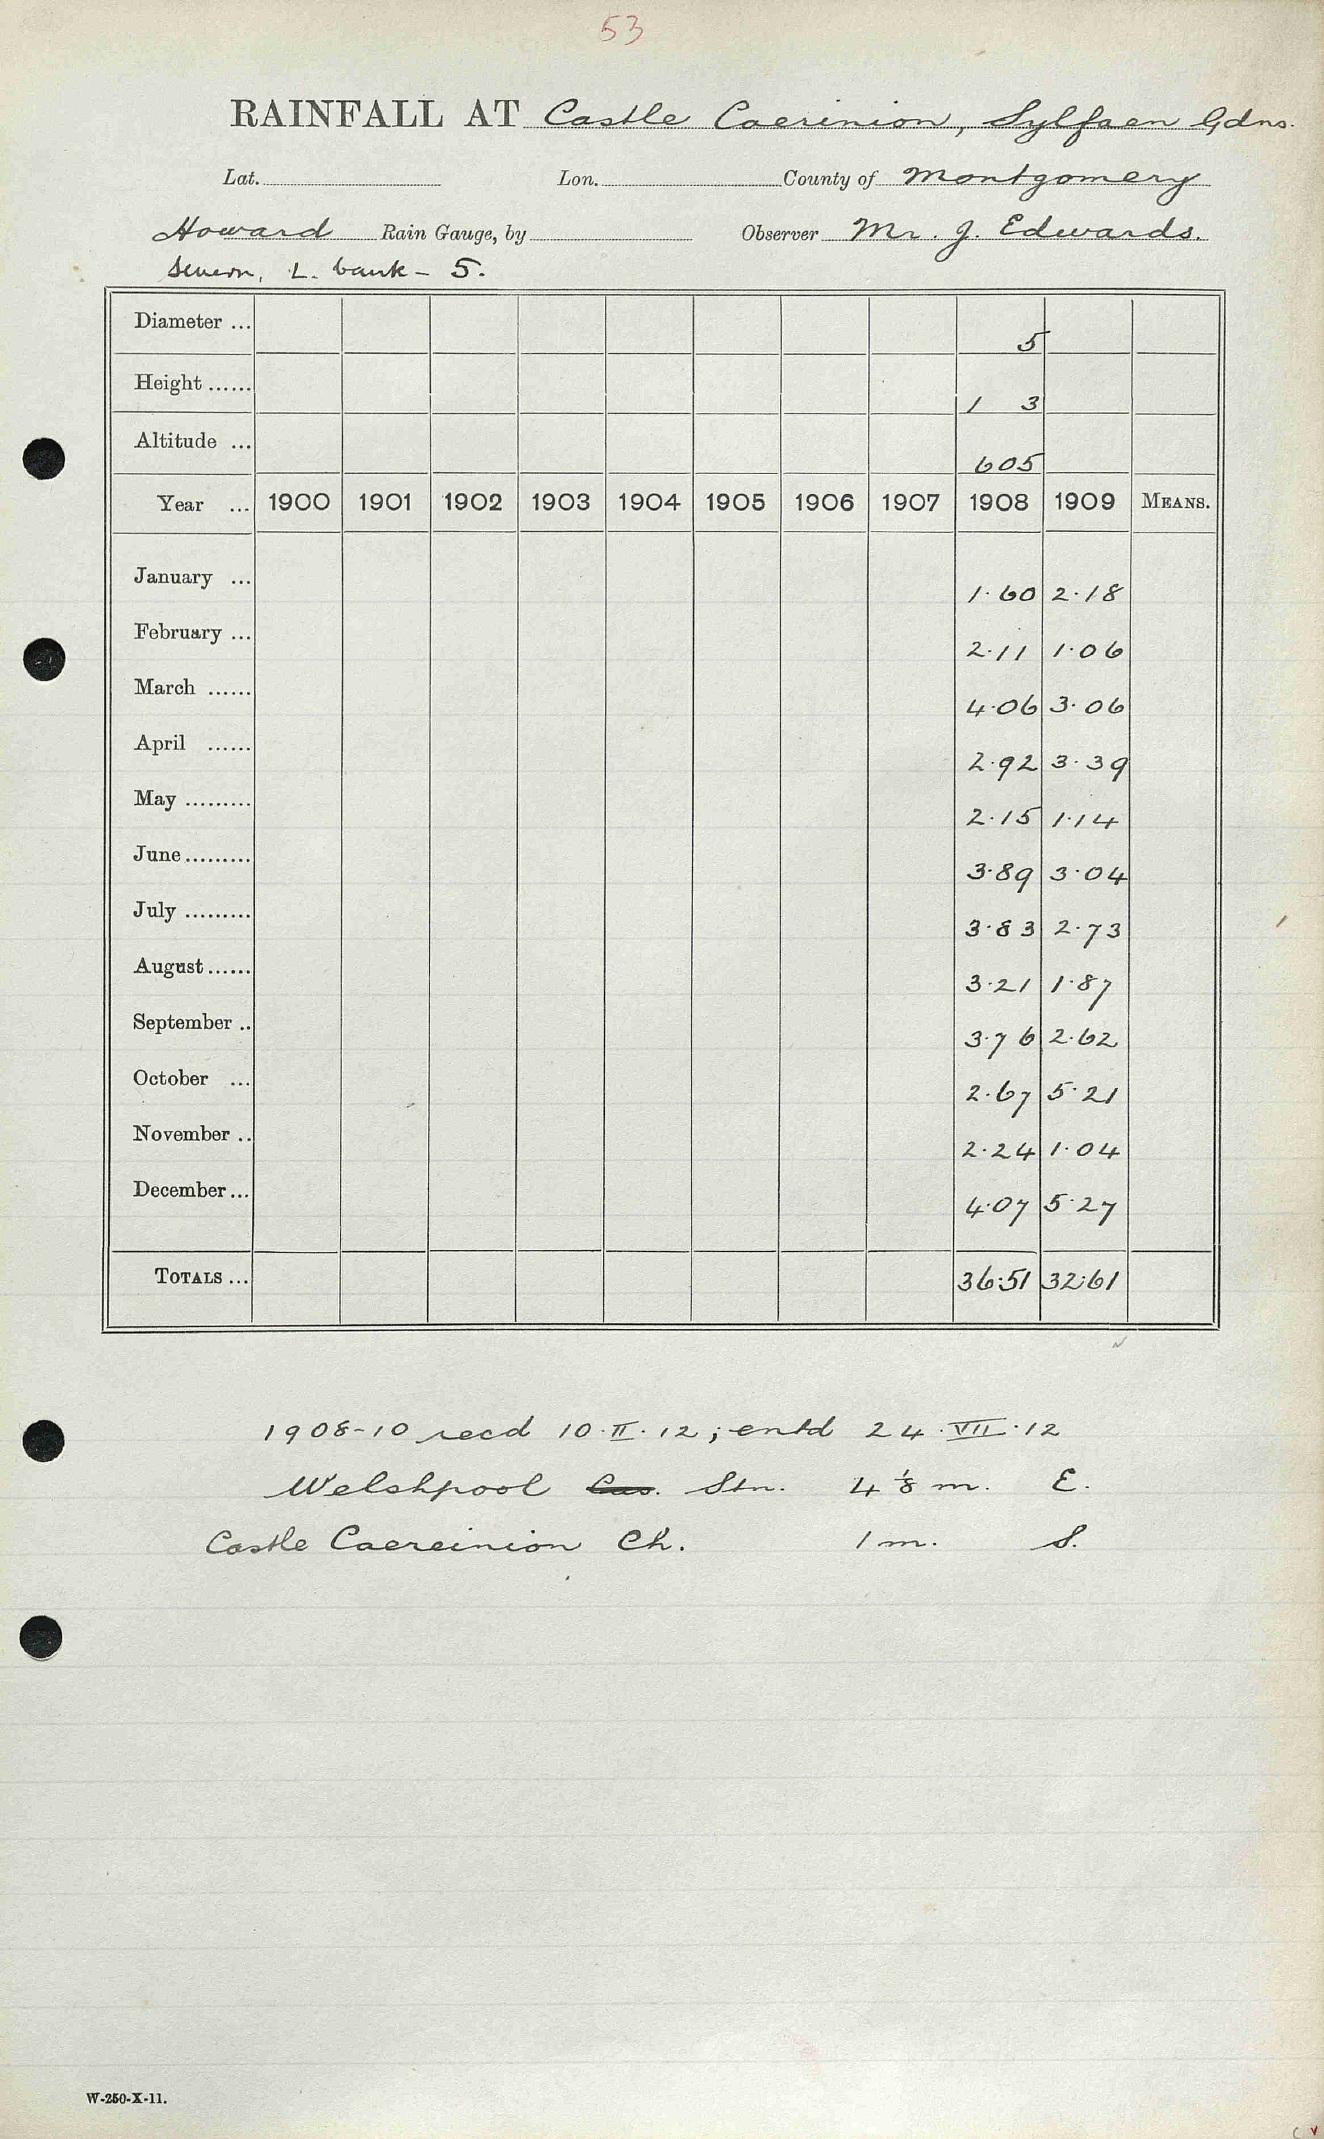 53
RAINFALL AT Castle Caerinion, Sylfaen Gdns.
Lat. Lon. County of Montgomery
Howard Rain Gauge, by Observer Mr. J. Edwards.
Severn, L. bank - 5.
Diameter ... 5
Height ...... 1 3
Altitude ... 605
Year ... 1900 1901 1902 1903 1904 1905 1906 1907 1908 1909 MEANS.
January ... 1.60 2.18
February ... 2.11 1.06
March ...... 4.06 3.06
April ...... 2.92 3.39
May ......... 2.15 1.14
June ......... 3.89 3.04
July ......... 3.83 2.73
August ...... 3.21 1.87
September .. 3.76 2.62
October ... 2.67 5.21
November .. 2.24 1.04
December ... 4.07 5.27
TOTALS ... 36.51 32.61
1908-10 recd 10.II.12; entd 24.VII.12
Welshpool Cas. Stn. 4 1/8 m. E.
Castle Caereinion Ch. 1 m. S.
W-250-X-11.